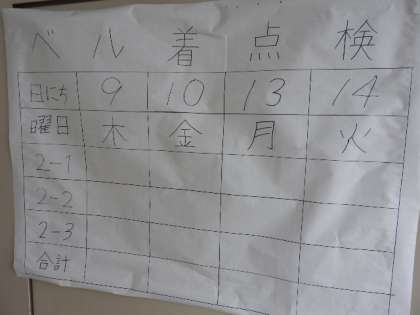 ベル着点検
日にち 9 10 13 14
曜日 木 金 月 火
2-1
2-2
2-3
合計